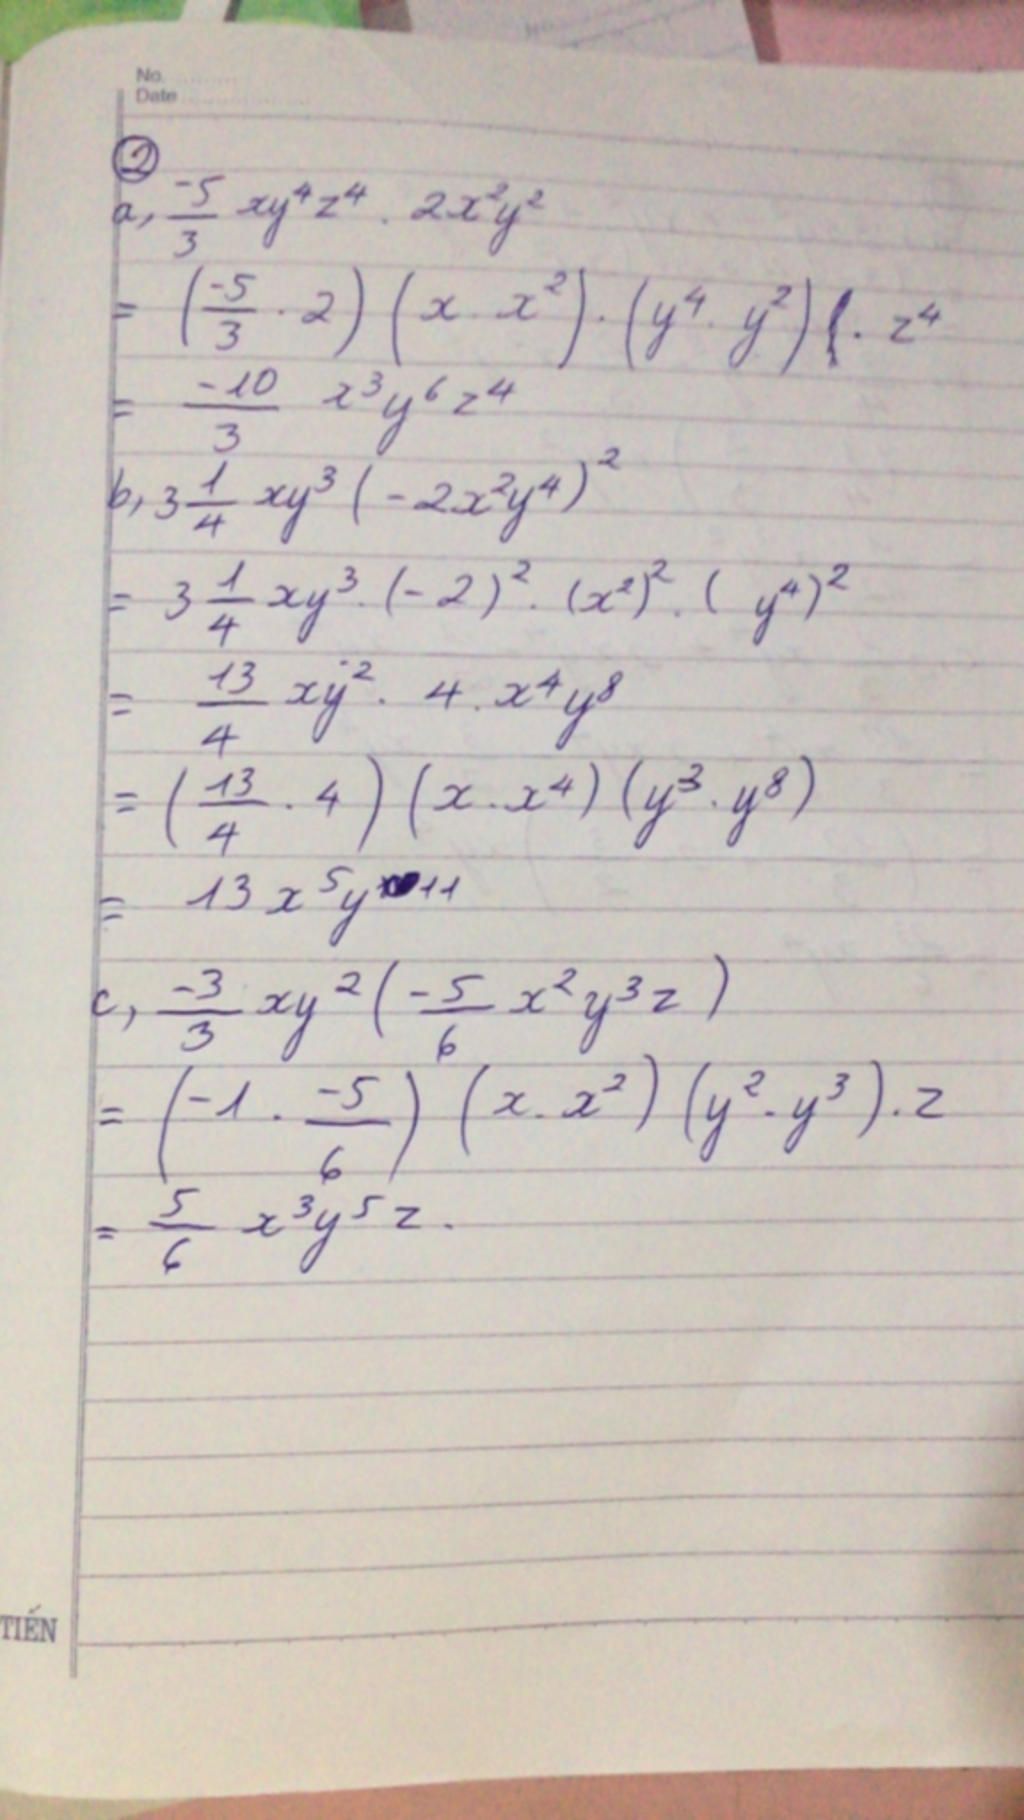 No.
Date
②
a, -5/3 xy⁴z⁴ . 2x²y²
= (-5/3 . 2) (x . x²) . (y⁴ . y²) . z⁴
= -10/3 x³y⁶z⁴
b, 3 1/4 xy³ (-2x²y⁴)²
= 3 1/4 xy³ . (-2)² . (x²)² . ( y⁴)²
= 13/4 xy² . 4 . x⁴y⁸
= (13/4 . 4) (x . x⁴) (y³ . y⁸)
= 13x⁵y¹¹
c, -3/3 xy² (-5/6 x²y³z)
= (-1 . -5/6) (x . x²) (y² . y³) . z
= 5/6 x³y⁵z.
TIẾN